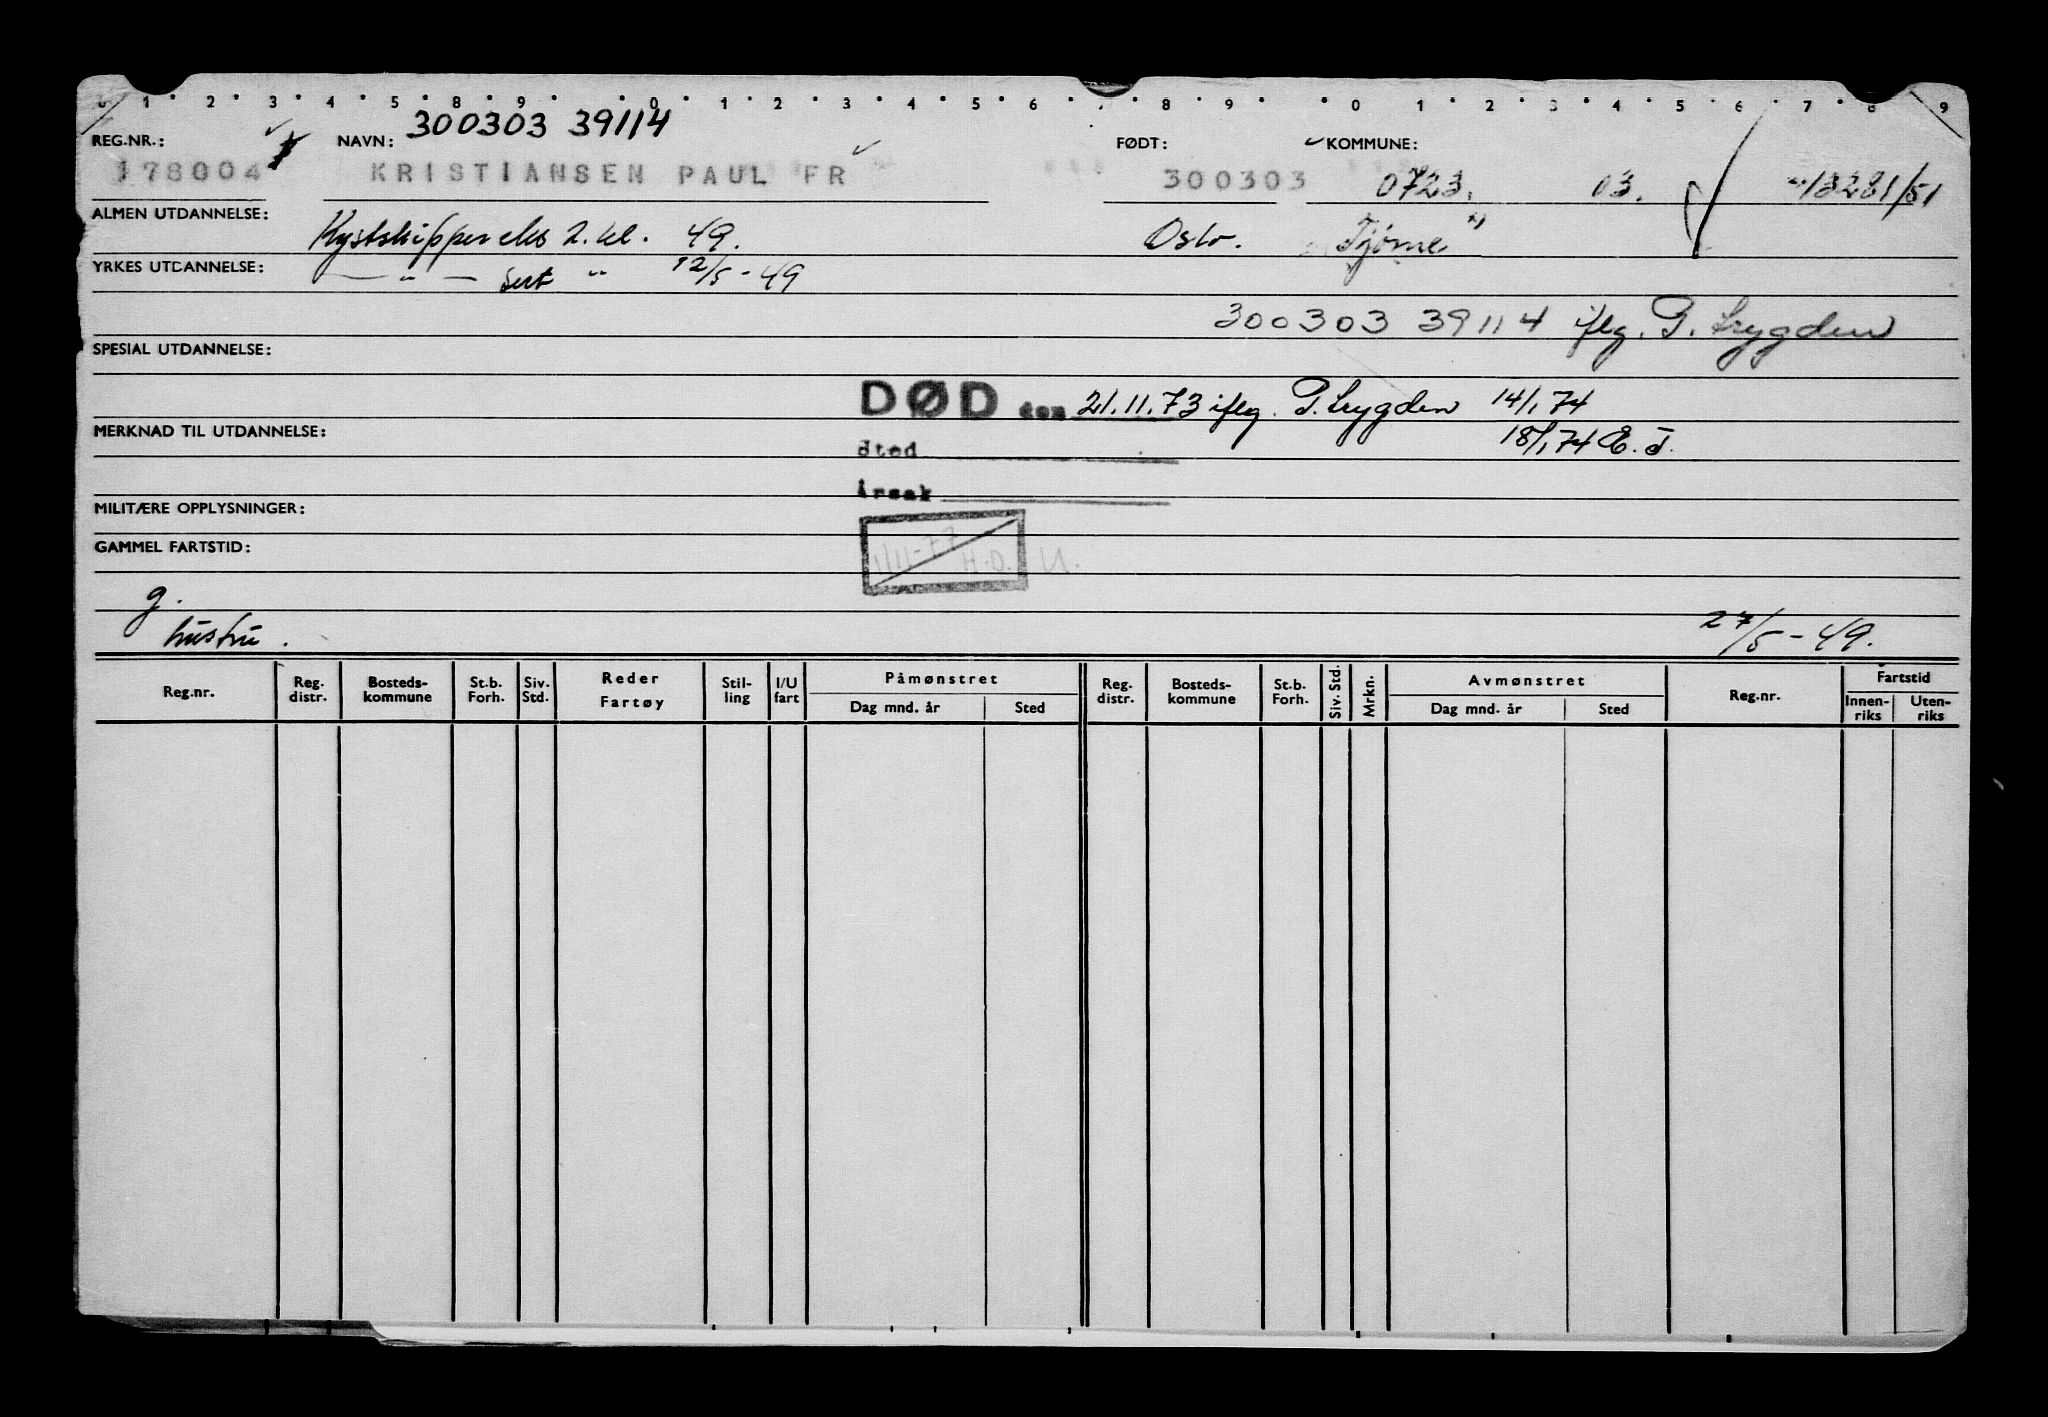 0 1 2 3 4 5 6 8 9 0 1 2 3 4 5 6 7 8 9 0 1 2 3 4 5 6 7 8 9
300303 39114
REG.NR.: NAVN: FØDT: KOMMUNE:
178004 KRISTIANSEN PAUL FR 300303 0723. 03. 13281/51
ALMEN UTDANNELSE: Kystskipper eks 2. kl. 49. Oslo. Tjøme "
YRKES UTDANNELSE: — " — Sert " 12/5-49
300303 39114 iflg. P. trygden
SPESIAL UTDANNELSE:
DØD den 21.11.73 iflg. P. trygden 14/1 74
MERKNAD TIL UTDANNELSE: 18/1 74 E. J.
Sted
Årsak
MILITÆRE OPPLYSNINGER:
GAMMEL FARTSTID: 1/11-77 H.O. U.
g.
hustru. 27/5-49.
Reg.nr. Reg. distr. Bosteds-kommune St.b. Forh. Siv. Std. Reder Fartøy Stil-ling I/U fart Påmønstret Dag mnd. år Sted Reg. distr. Bosteds-kommune St.b. Forh. Siv. Std. Mrkn. Avmønstret Dag mnd. år Sted Reg.nr. Fartstid Innen-riks Uten-riks